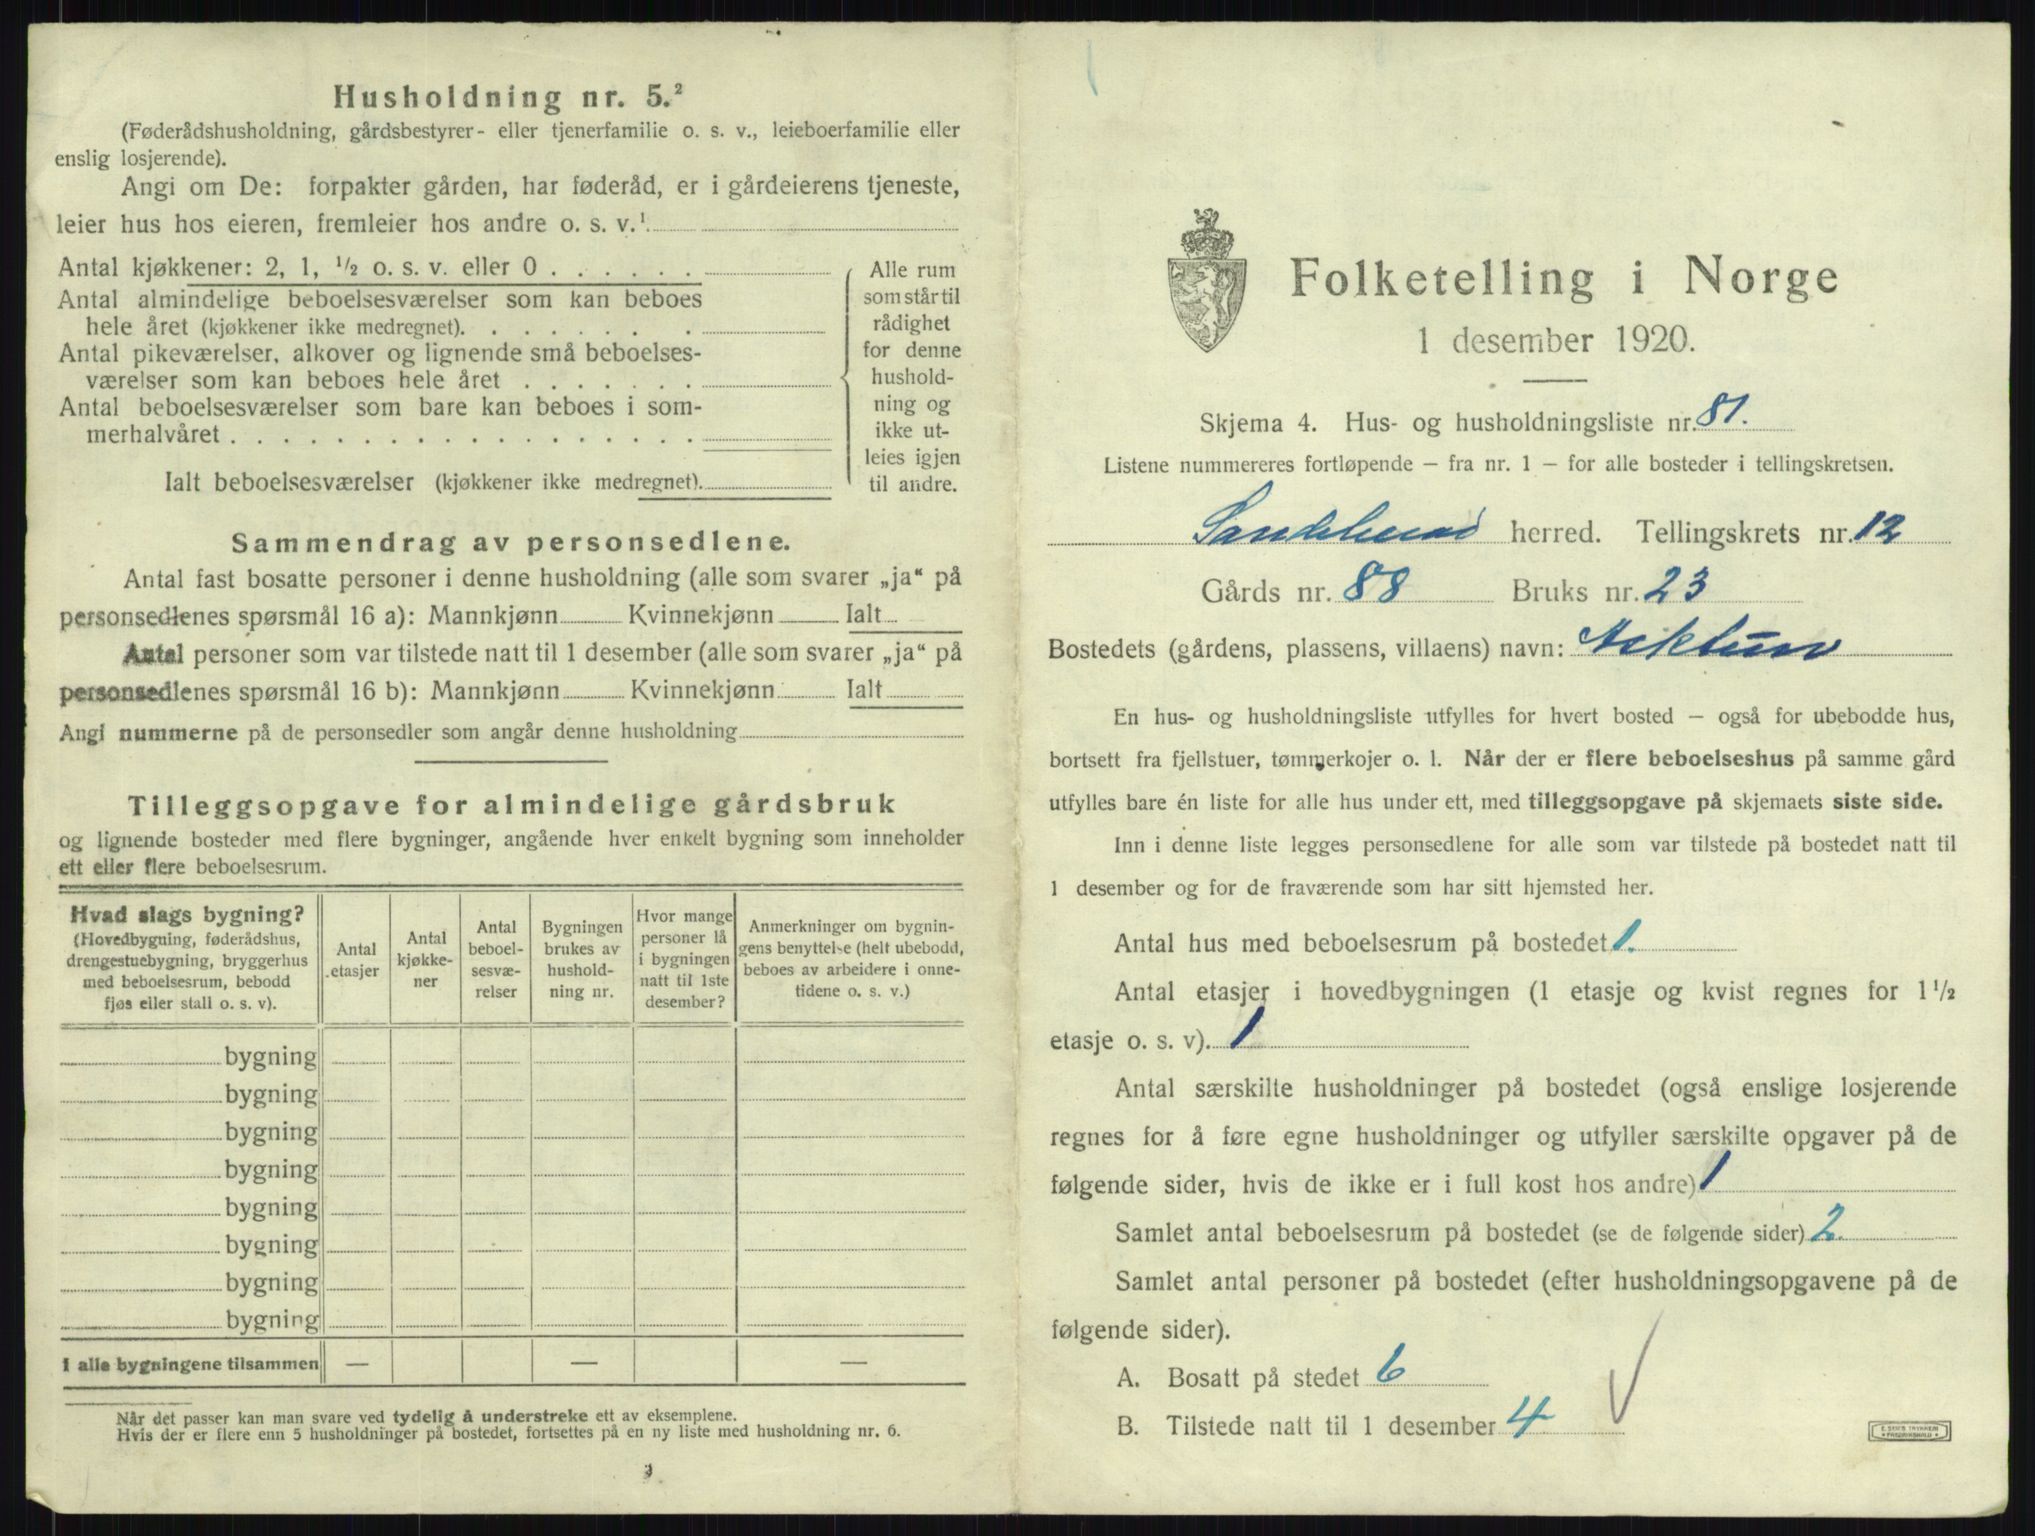 Husholdning nr. 5.²
(Føderådshusholdning, gårdsbestyrer- eller tjenerfamilie o. s. v., leieboerfamilie eller
enslig losjerende).
Angi om De: forpakter gården, har føderåd, er i gårdeierens tjeneste,
leier hus hos eieren, fremleier hos andre o. s. v.¹
Antal kjøkkener: 2, 1, ½ o. s. v. eller 0 . . . . . .
Antal almindelige beboelsesværelser som kan beboes
hele året (kjøkkener ikke medregnet). . . . . . . . .
Antal pikeværelser, alkover og lignende små beboelses-
værelser som kan beboes hele året . . . . . . .
Antal beboelsesværelser som bare kan beboes i som-
merhalvåret . . . . . . . . . . . . . . . . . .
Ialt beboelsesværelser (kjøkkener ikke medregnet).
Alle rum
som står til
rådighet
for denne
hushold-
ning og
ikke ut-
leies igjen
til andre.
Sammendrag av personsedlene.
Antal fast bosatte personer i denne husholdning (alle som svarer „ja“ på
personsedlenes spørsmål 16 a): Mannkjønn Kvinnekjønn Ialt
Antal personer som var tilstede natt til 1 desember (alle som svarer „ja“ på
personsedlenes spørsmål 16 b): Mannkjønn Kvinnekjønn Ialt
Angi nummerne på de personsedler som angår denne husholdning
Tilleggsopgave for almindelige gårdsbruk
og lignende bosteder med flere bygninger, angående hver enkelt bygning som inneholder
ett eller flere beboelsesrum.
Hvad slags bygning?
(Hovedbygning, føderådshus,
drengestuebygning, bryggerhus
med beboelsesrum, bebodd
fjøs eller stall o. s. v).
Antal
etasjer
Antal
kjøkke-
ner
Antal
beboel-
sesvæ-
relser
Bygningen
brukes av
hushold-
ning nr.
Hvor mange
personer lå
i bygningen
natt til 1ste
desember?
Anmerkninger om bygnin-
gens benyttelse (helt ubebodd,
beboes av arbeidere i onne-
tidene o. s. v.)
bygning
bygning
bygning
bygning
bygning
bygning
bygning
bygning
I alle bygningene tilsammen — — —
Når det passer kan man svare ved tydelig å understreke ett av eksemplene.
Hvis der er flere enn 5 husholdninger på bostedet, fortsettes på en ny liste med husholdning nr. 6.
Folketelling i Norge
1 desember 1920.
Skjema 4. Hus- og husholdningsliste nr. 81.
Listene nummereres fortløpende — fra nr. 1 — for alle bosteder i tellingskretsen.
herred. Tellingskrets nr. 12
Gårds nr. 88 Bruks nr. 23
Bostedets (gårdens, plassens, villaens) navn:
En hus- og husholdningsliste utfylles for hvert bosted — også for ubebodde hus,
bortsett fra fjellstuer, tømmerkojer o. l. Når der er flere beboelseshus på samme gård
utfylles bare én liste for alle hus under ett, med tilleggsopgave på skjemaets siste side.
Inn i denne liste legges personsedlene for alle som var tilstede på bostedet natt til
1 desember og for de fraværende som har sitt hjemsted her.
Antal hus med beboelsesrum på bostedet 1.
Antal etasjer i hovedbygningen (1 etasje og kvist regnes for 1½
etasje o. s. v). 1
Antal særskilte husholdninger på bostedet (også enslige losjerende
regnes for å føre egne husholdninger og utfyller særskilte opgaver på de
følgende sider, hvis de ikke er i full kost hos andre) 1
Samlet antal beboelsesrum på bostedet (se de følgende sider) 2.
Samlet antal personer på bostedet (efter husholdningsopgavene på de
følgende sider).
A. Bosatt på stedet 6
B. Tilstede natt til 1 desember 4